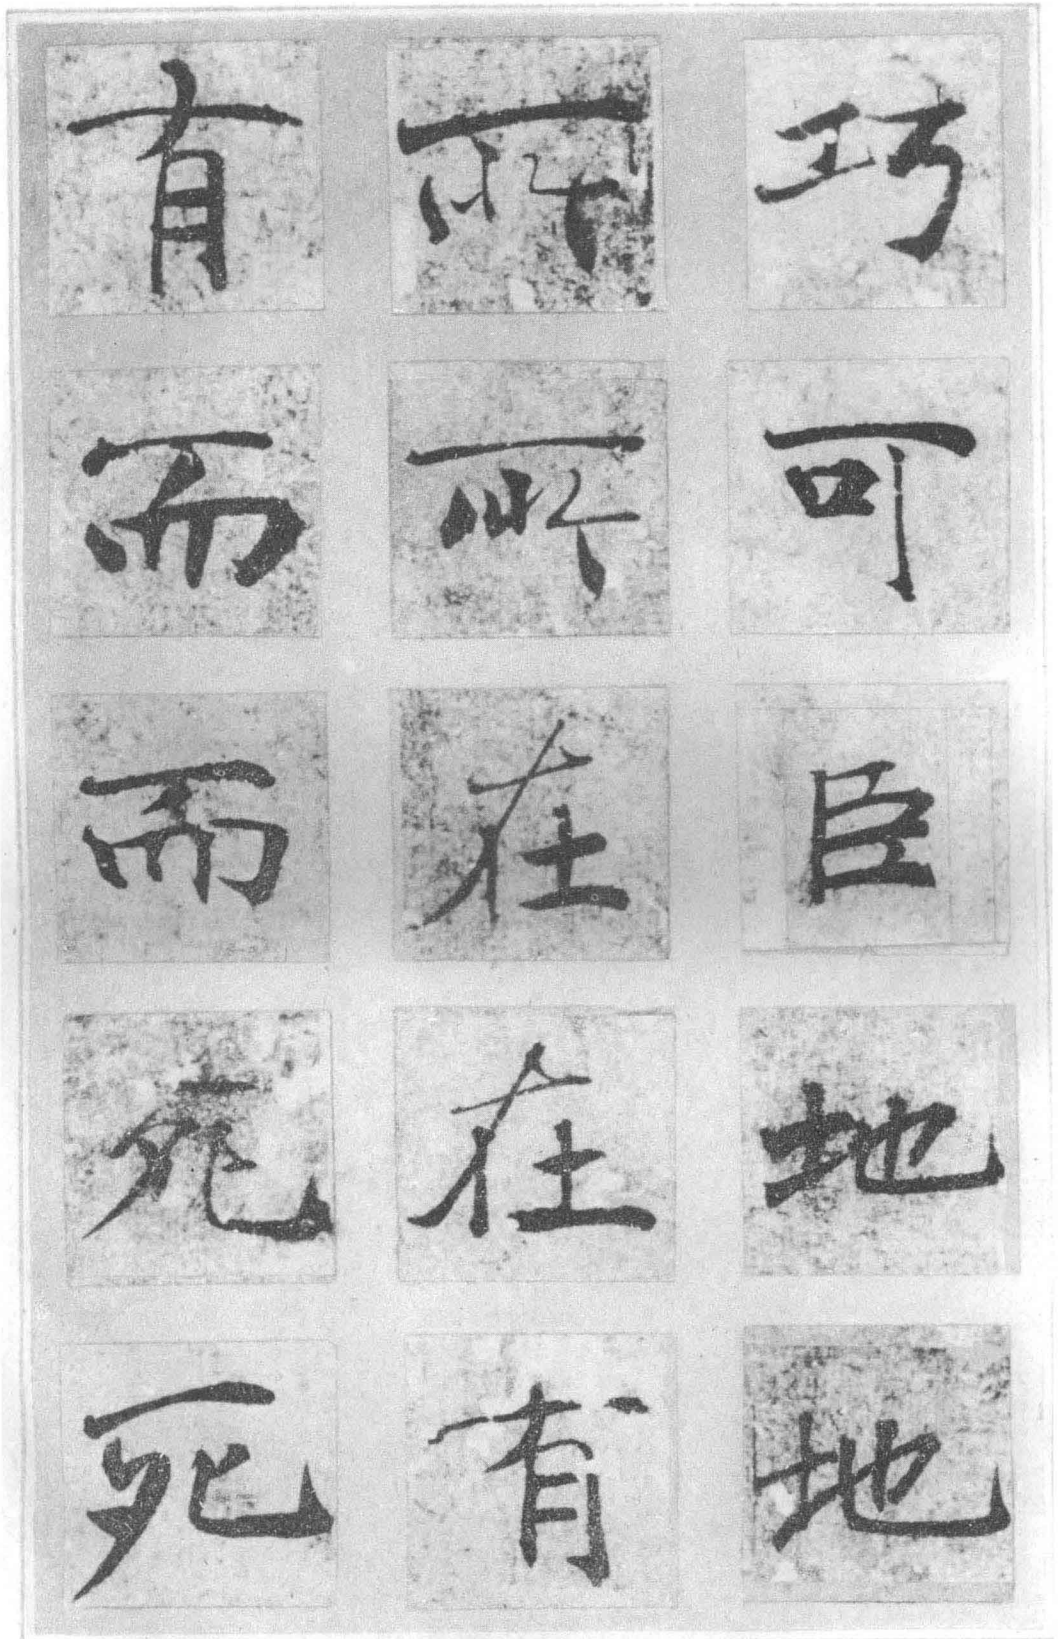 巧可臣地地
所所在在有
有而而死死